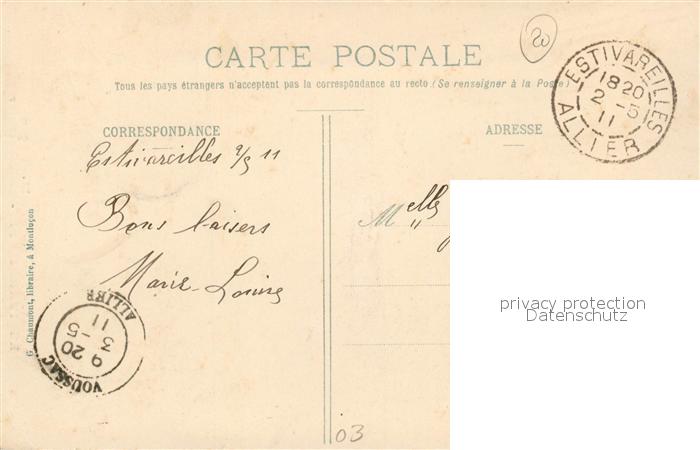 20
CARTE POSTALE
Tous les pays étrangers n'acceptent pas la correspondance au recto (Se renseigner à la Poste)
ESTIVAREILLES
18 20
2 - 5
11
ALLIER
CORRESPONDANCE
ADRESSE
Estivareilles 2/5 11
Bons baisers
Marie-Louise
Melle
G. Chaumont, libraire, à Montluçon
ALLIER
9 20
3 - 5
11
VOUSSAC
privacy protection
Datenschutz
03